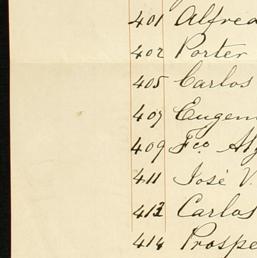 401 Alfred
402 Porter
405 Carlos
407 Eugen
409 Fco Al
411 José V.
413 Carlos
414 Prospe